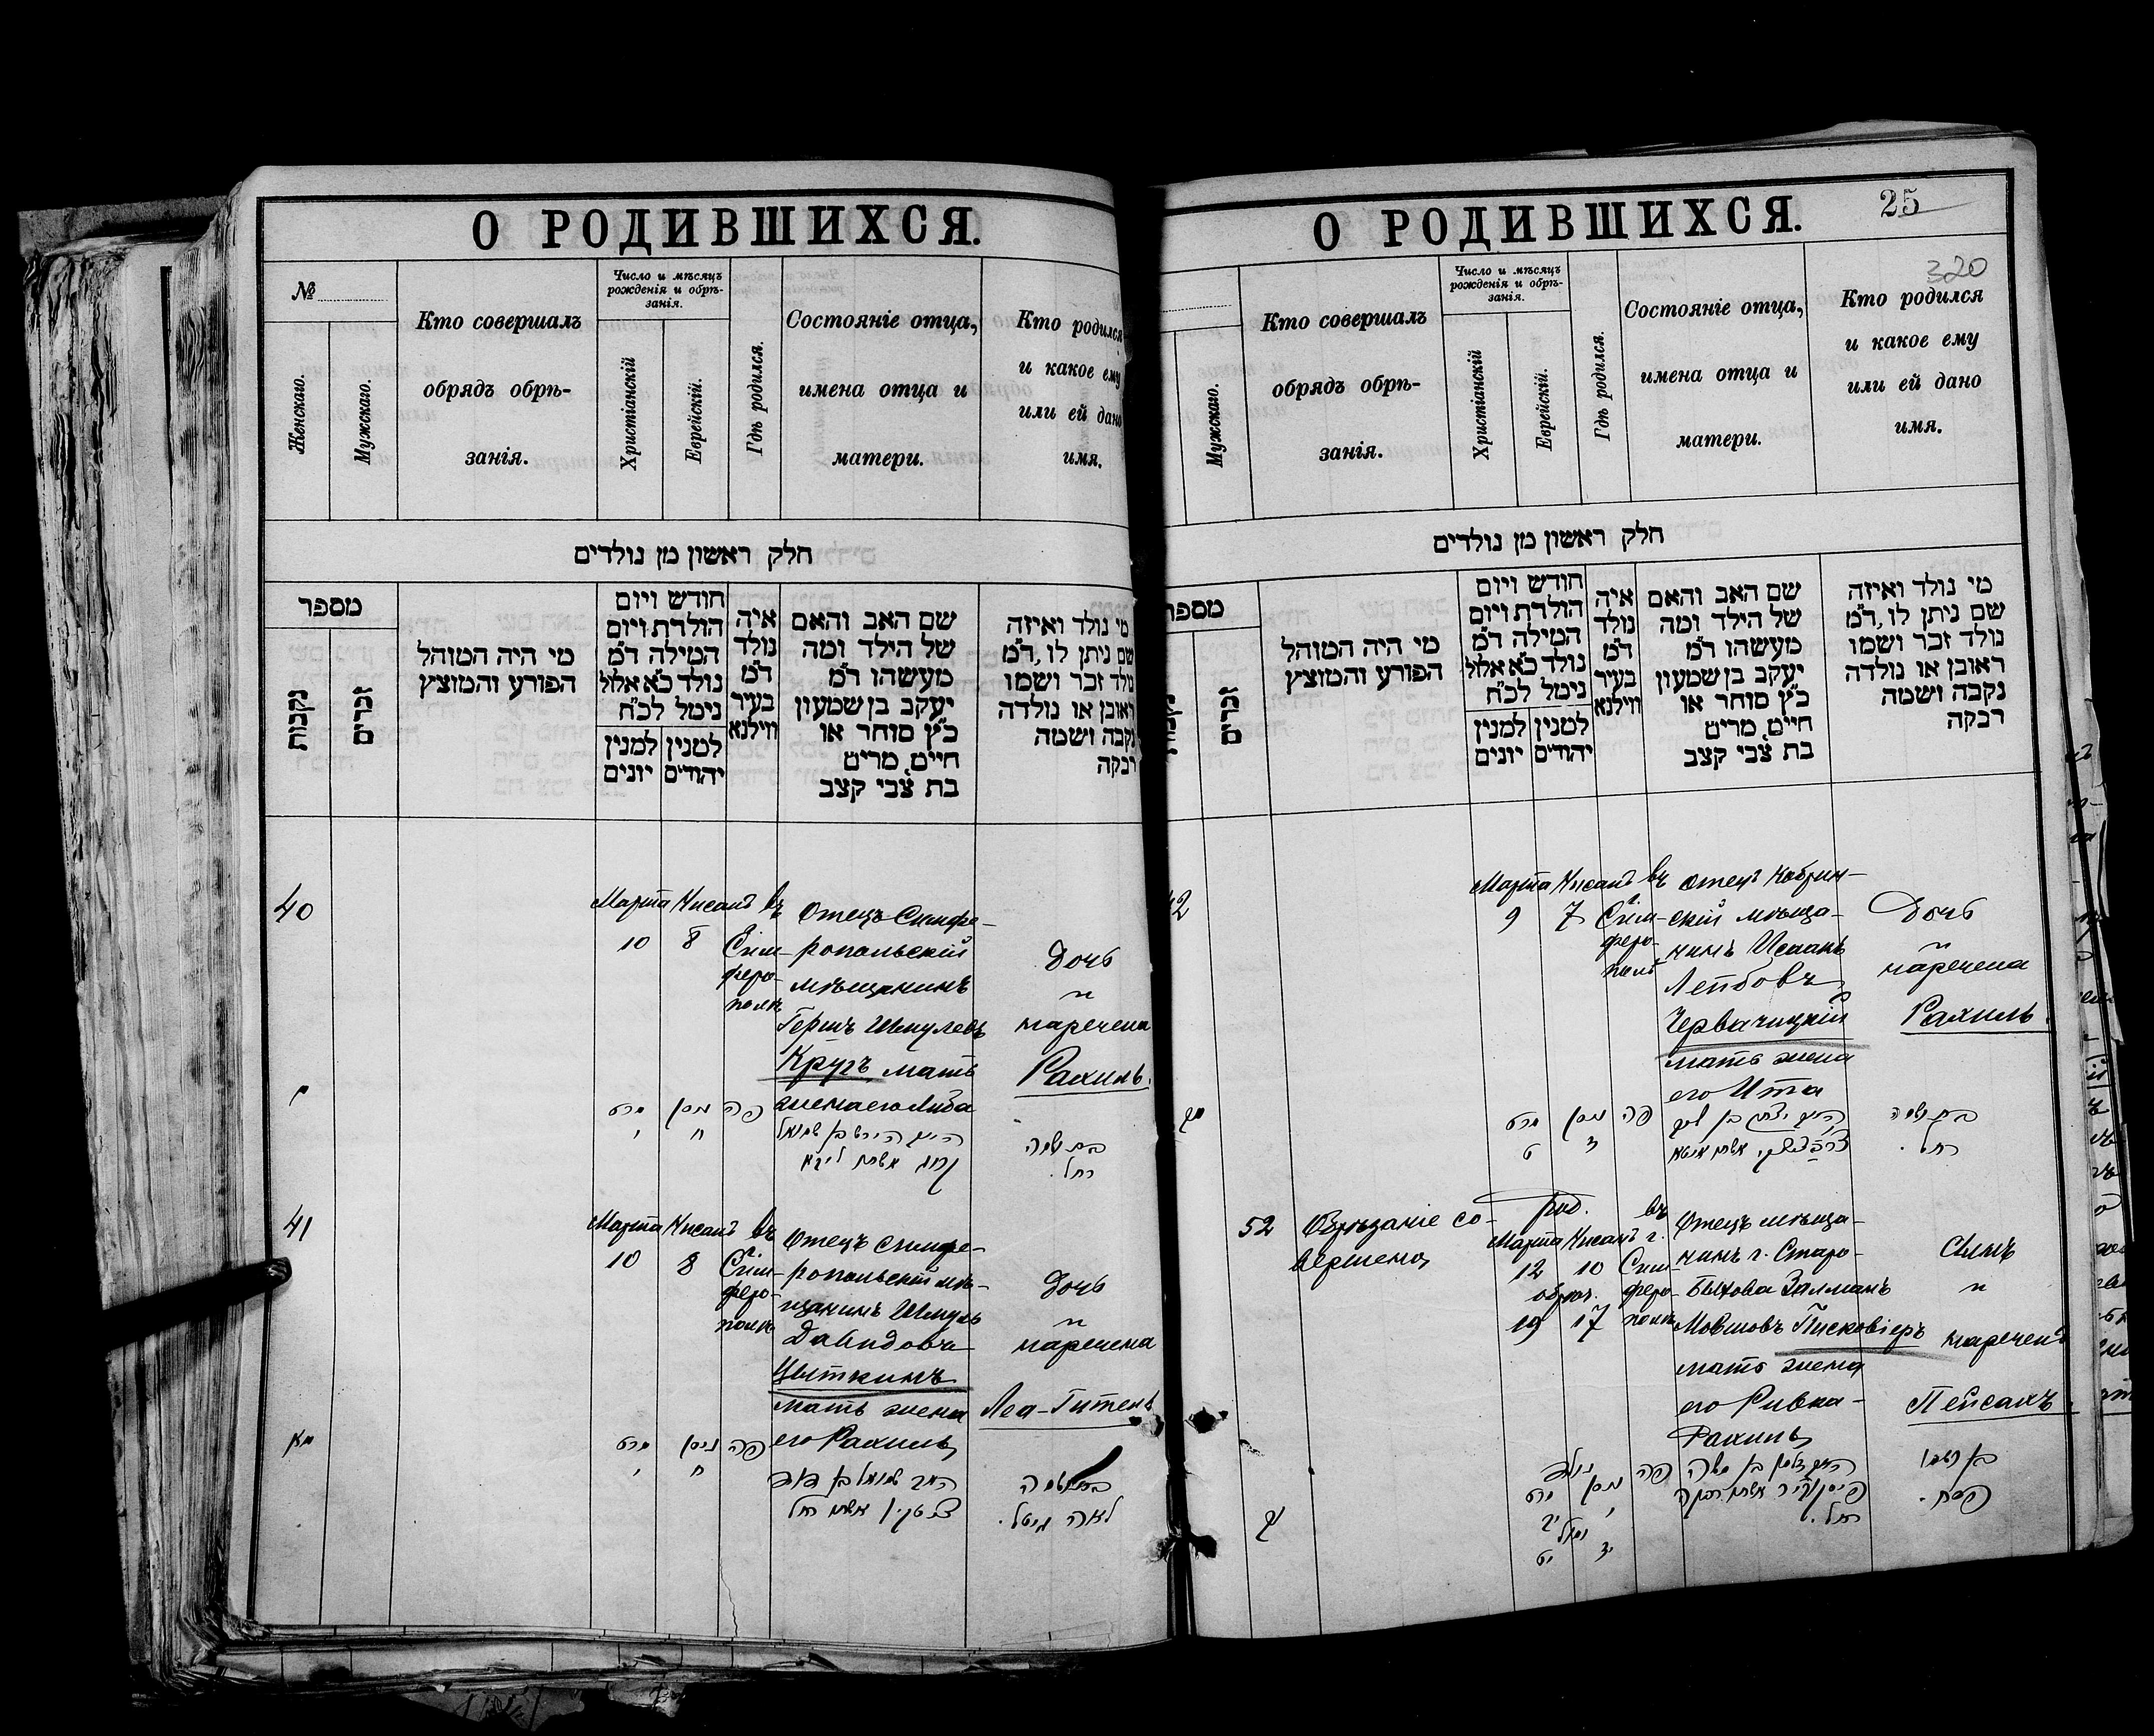 О РОДИВШИХСЯ.
№
Женскаго.
Мужскаго.
Кто совершалъ
обрядъ обрѣ-
занія.
Число и мѣсяцъ
рожденія и обрѣ-
занія.
Христіанскій
Еврейскій.
Гдѣ родился.
Состояніе отца,
имена отца и
матери.
Кто родился
и какое ему
или ей дано
имя.
חלק ראשון מן נולדים
מספר
נקבות
זכרים
מי היה המוהל
הפורע והמוצץ
חודש ויום
הולדת ויום
המילה ד״מ
נולד כ״א אלול
נימל לכ״ח
למנין יונים
למנין יהודים
איה
נולד
ד״מ
בעיר
ווילנא
שם האב והאם
של הילד ומה
מעשהו ד״מ
יעקב בן שמעון
כ״ץ סוחר או
חיים, מרים
בת צבי קצב
מי נולד ואיזה
שם ניתן לו, ד״מ
נולד זכר ושמו
ראובן או נולדה
נקבה ושמה
רבקה
40
Марта Нисанъ въ
10 8 Сим-
феро-
полѣ
Отецъ Симфе-
ропольскій
мѣщанинъ
Гершъ Шмулевъ
Кругъ мать
жена его Либа
Дочь
и
наречена
Рахиль.
מ
מרט ניסן פה
י ח
בת שמה
רחל.
41
Марта Нисанъ въ
10 8 Сим-
феро-
полѣ
Отецъ симфе-
ропольскій мѣ-
щанинъ Шмуль
Давидовъ
Цыткинъ
мать жена
его Рахиль
Дочь
и
наречена
Леа-Гитель
מא
מרט ניסן פה
י ח
לאה גיטל.
О РОДИВШИХСЯ.
25
320
Мужскаго.
Кто совершалъ
обрядъ обрѣ-
занія.
Число и мѣсяцъ
рожденія и обрѣ-
занія.
Христіанскій
Еврейскій.
Гдѣ родился.
Состояніе отца,
имена отца и
матери.
Кто родился
и какое ему
или ей дано
имя.
חלק ראשון מן נולדים
מספר
זכרים
מי היה המוהל
הפורע והמוצץ
חודש ויום
הולדת ויום
המילה ד״מ
נולד כ״א אלול
נימל לכ״ח
למנין יונים
למנין יהודים
איה
נולד
ד״מ
בעיר
ווילנא
שם האב והאם
של הילד ומה
מעשהו ד״מ
יעקב בן שמעון
כ״ץ סוחר או
חיים, מרים
בת צבי קצב
מי נולד ואיזה
שם ניתן לו, ד״מ
נולד זכר ושמו
ראובן או נולדה
נקבה ושמה
רבקה
42
Марта Нисанъ въ
9 7 Сим-
феро-
полѣ
Отецъ Кобрин-
скій мѣща-
нинъ Исаакъ
Лейбовъ
Червачицкій
мать жена
его Ита
Дочь
и
наречена
Рахиль.
מב
מרט ניסן פה
ט ז
בת שמה
רחל.
52
Обрѣзаніе со-
вершено
род. въ
Марта Нисанъ г.
12 10 Сим-
обрѣз. феро-
19 17 полѣ
Отецъ мѣща-
нинъ г. Старо-
Быхова Залманъ
Мовшовъ Писковіеръ
мать жена
его Ривка-
Рахиль
Сынъ
и
нареченъ
Пейсахъ.
נולד
מרט ניסן פה
יב י
נימל
יט יז
פסח.